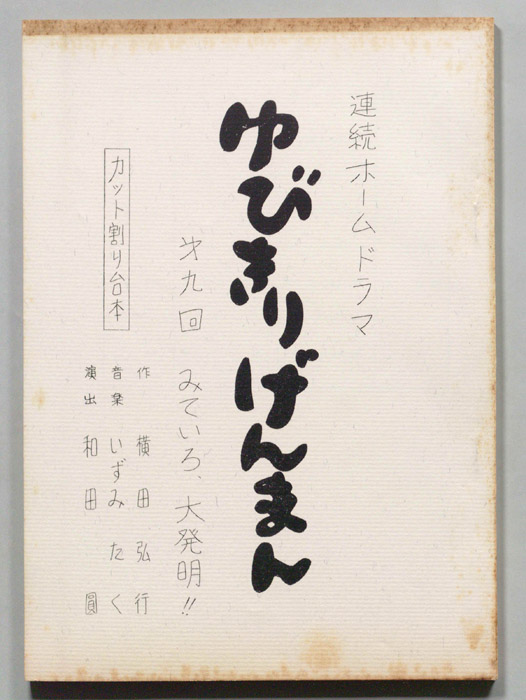 連続ホームドラマ
ゆびきりげんまん
㐧九回 みていろ、大発明!!
カット割り台本
作 横田弘行
音楽 いずみたく
演出 和田圓